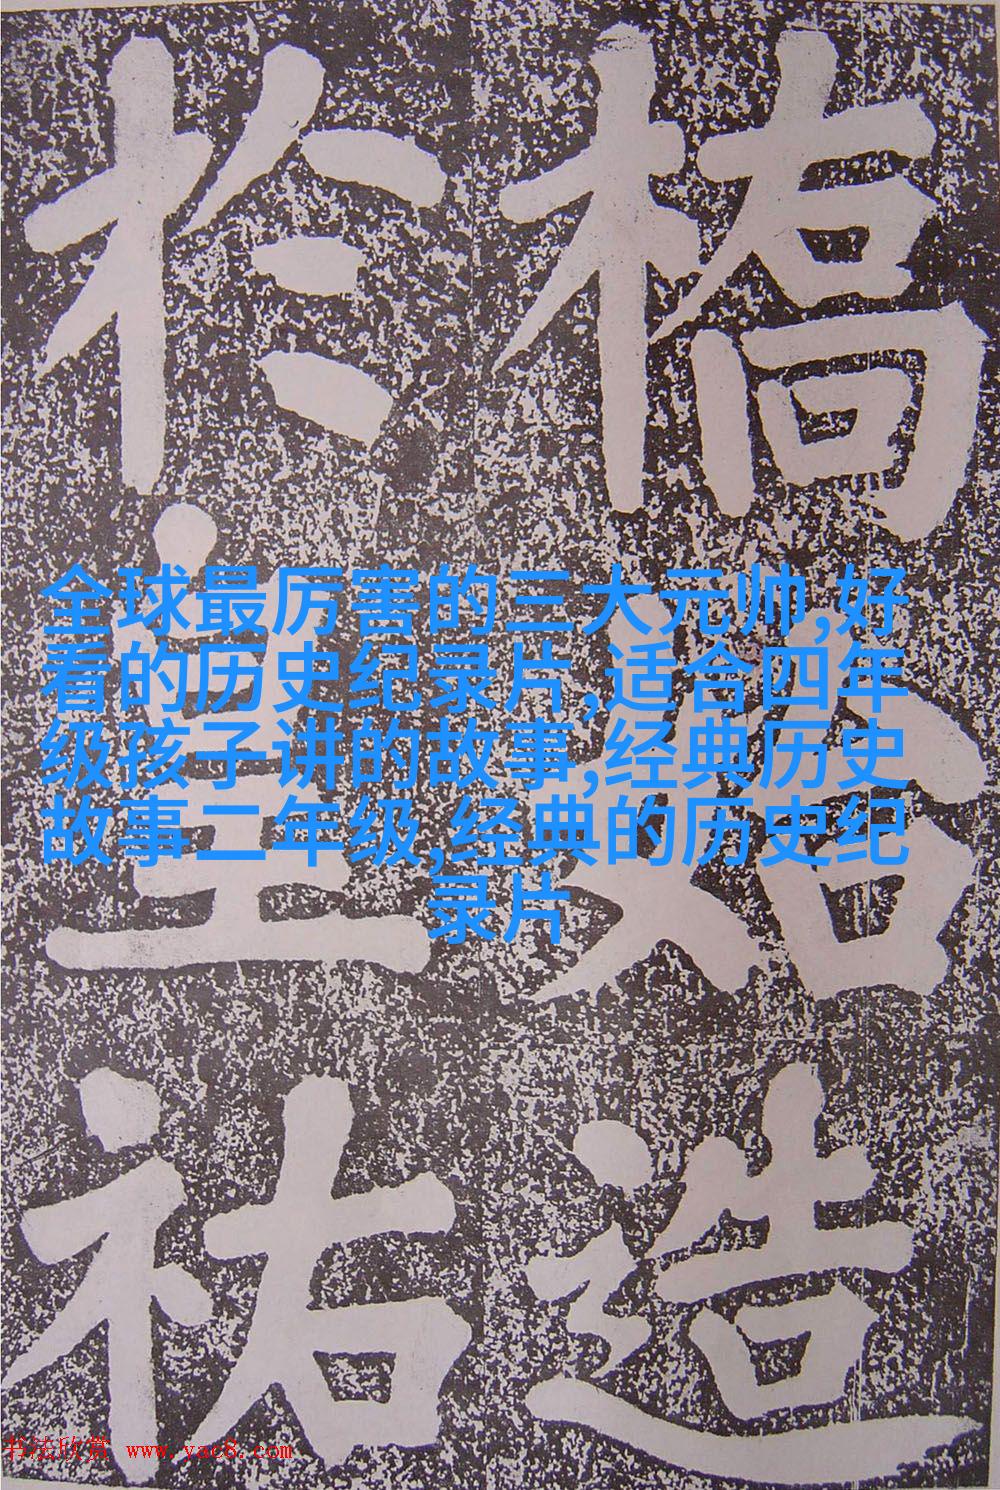 橋始造
於皇祐
全球最厉害的三大元帅,好
看的历史纪录片,适合四年
级孩子讲的故事,经典历史
故事二年级,经典的历史纪
录片
书法欣赏 www.yac8.com